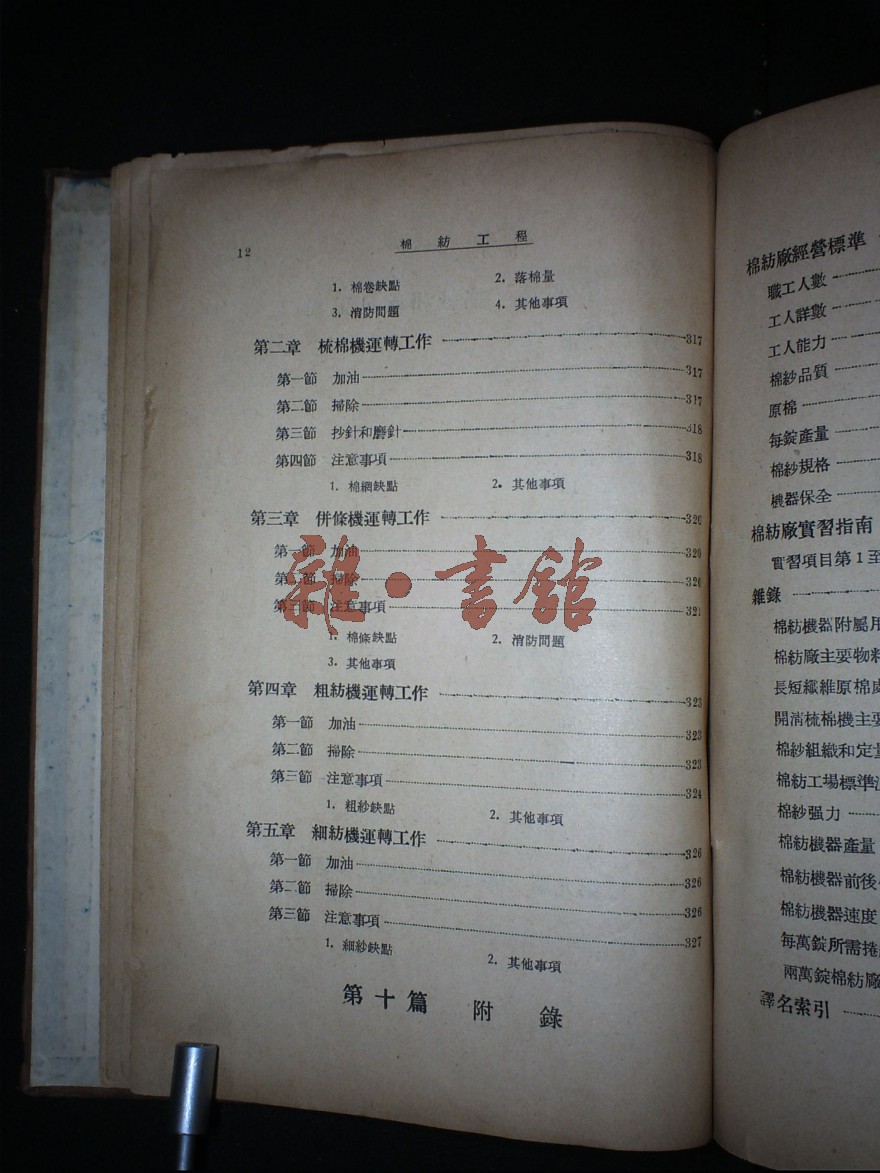 12
棉紡工程
1. 棉卷缺點 2. 落棉量
3. 消防問題 4. 其他事項
第二章 梳棉機運轉工作 317
第一節 加油 317
第二節 掃除 317
第三節 抄針和磨針 318
第四節 注意事項 318
1. 棉網缺點 2. 其他事項
第三章 併條機運轉工作 320
第一節 加油 320
第二節 掃除 320
第三節 注意事項 321
1. 棉條缺點 2. 消防問題
3. 其他事項
第四章 粗紡機運轉工作 323
第一節 加油 323
第二節 掃除 323
第三節 注意事項 324
1. 粗紗缺點 2. 其他事項
第五章 細紡機運轉工作 326
第一節 加油 326
第二節 掃除 326
第三節 注意事項 327
1. 細紗缺點 2. 其他事項
第十篇 附錄
雜·書館
棉紡廠經營標準
職工人數
工人詳數
工人能力
棉紗品質
原棉
每錠產量
棉紗規格
機器保全
棉紡廠實習指南
實習項目第1至
雜錄
棉紡機器附屬用
棉紡廠主要物料
長短纖維原棉處
開清梳棉機主要
棉紗組織和定量
棉紡工場標準
棉紗强力
棉紡機器產量
棉紡機器前後
棉紡機器速度
每萬錠所需捲
兩萬錠棉紡廠
譯名索引